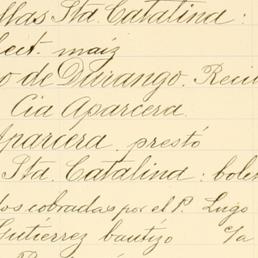 llas Sta Catalina:
lect. maiz
o de Durango. Reci
Cia Aparcera.
Aparcera. prestó
Sta. Catalina: bole
os cobradas por el P. Lugo
Gutiérrez bautizo c/a